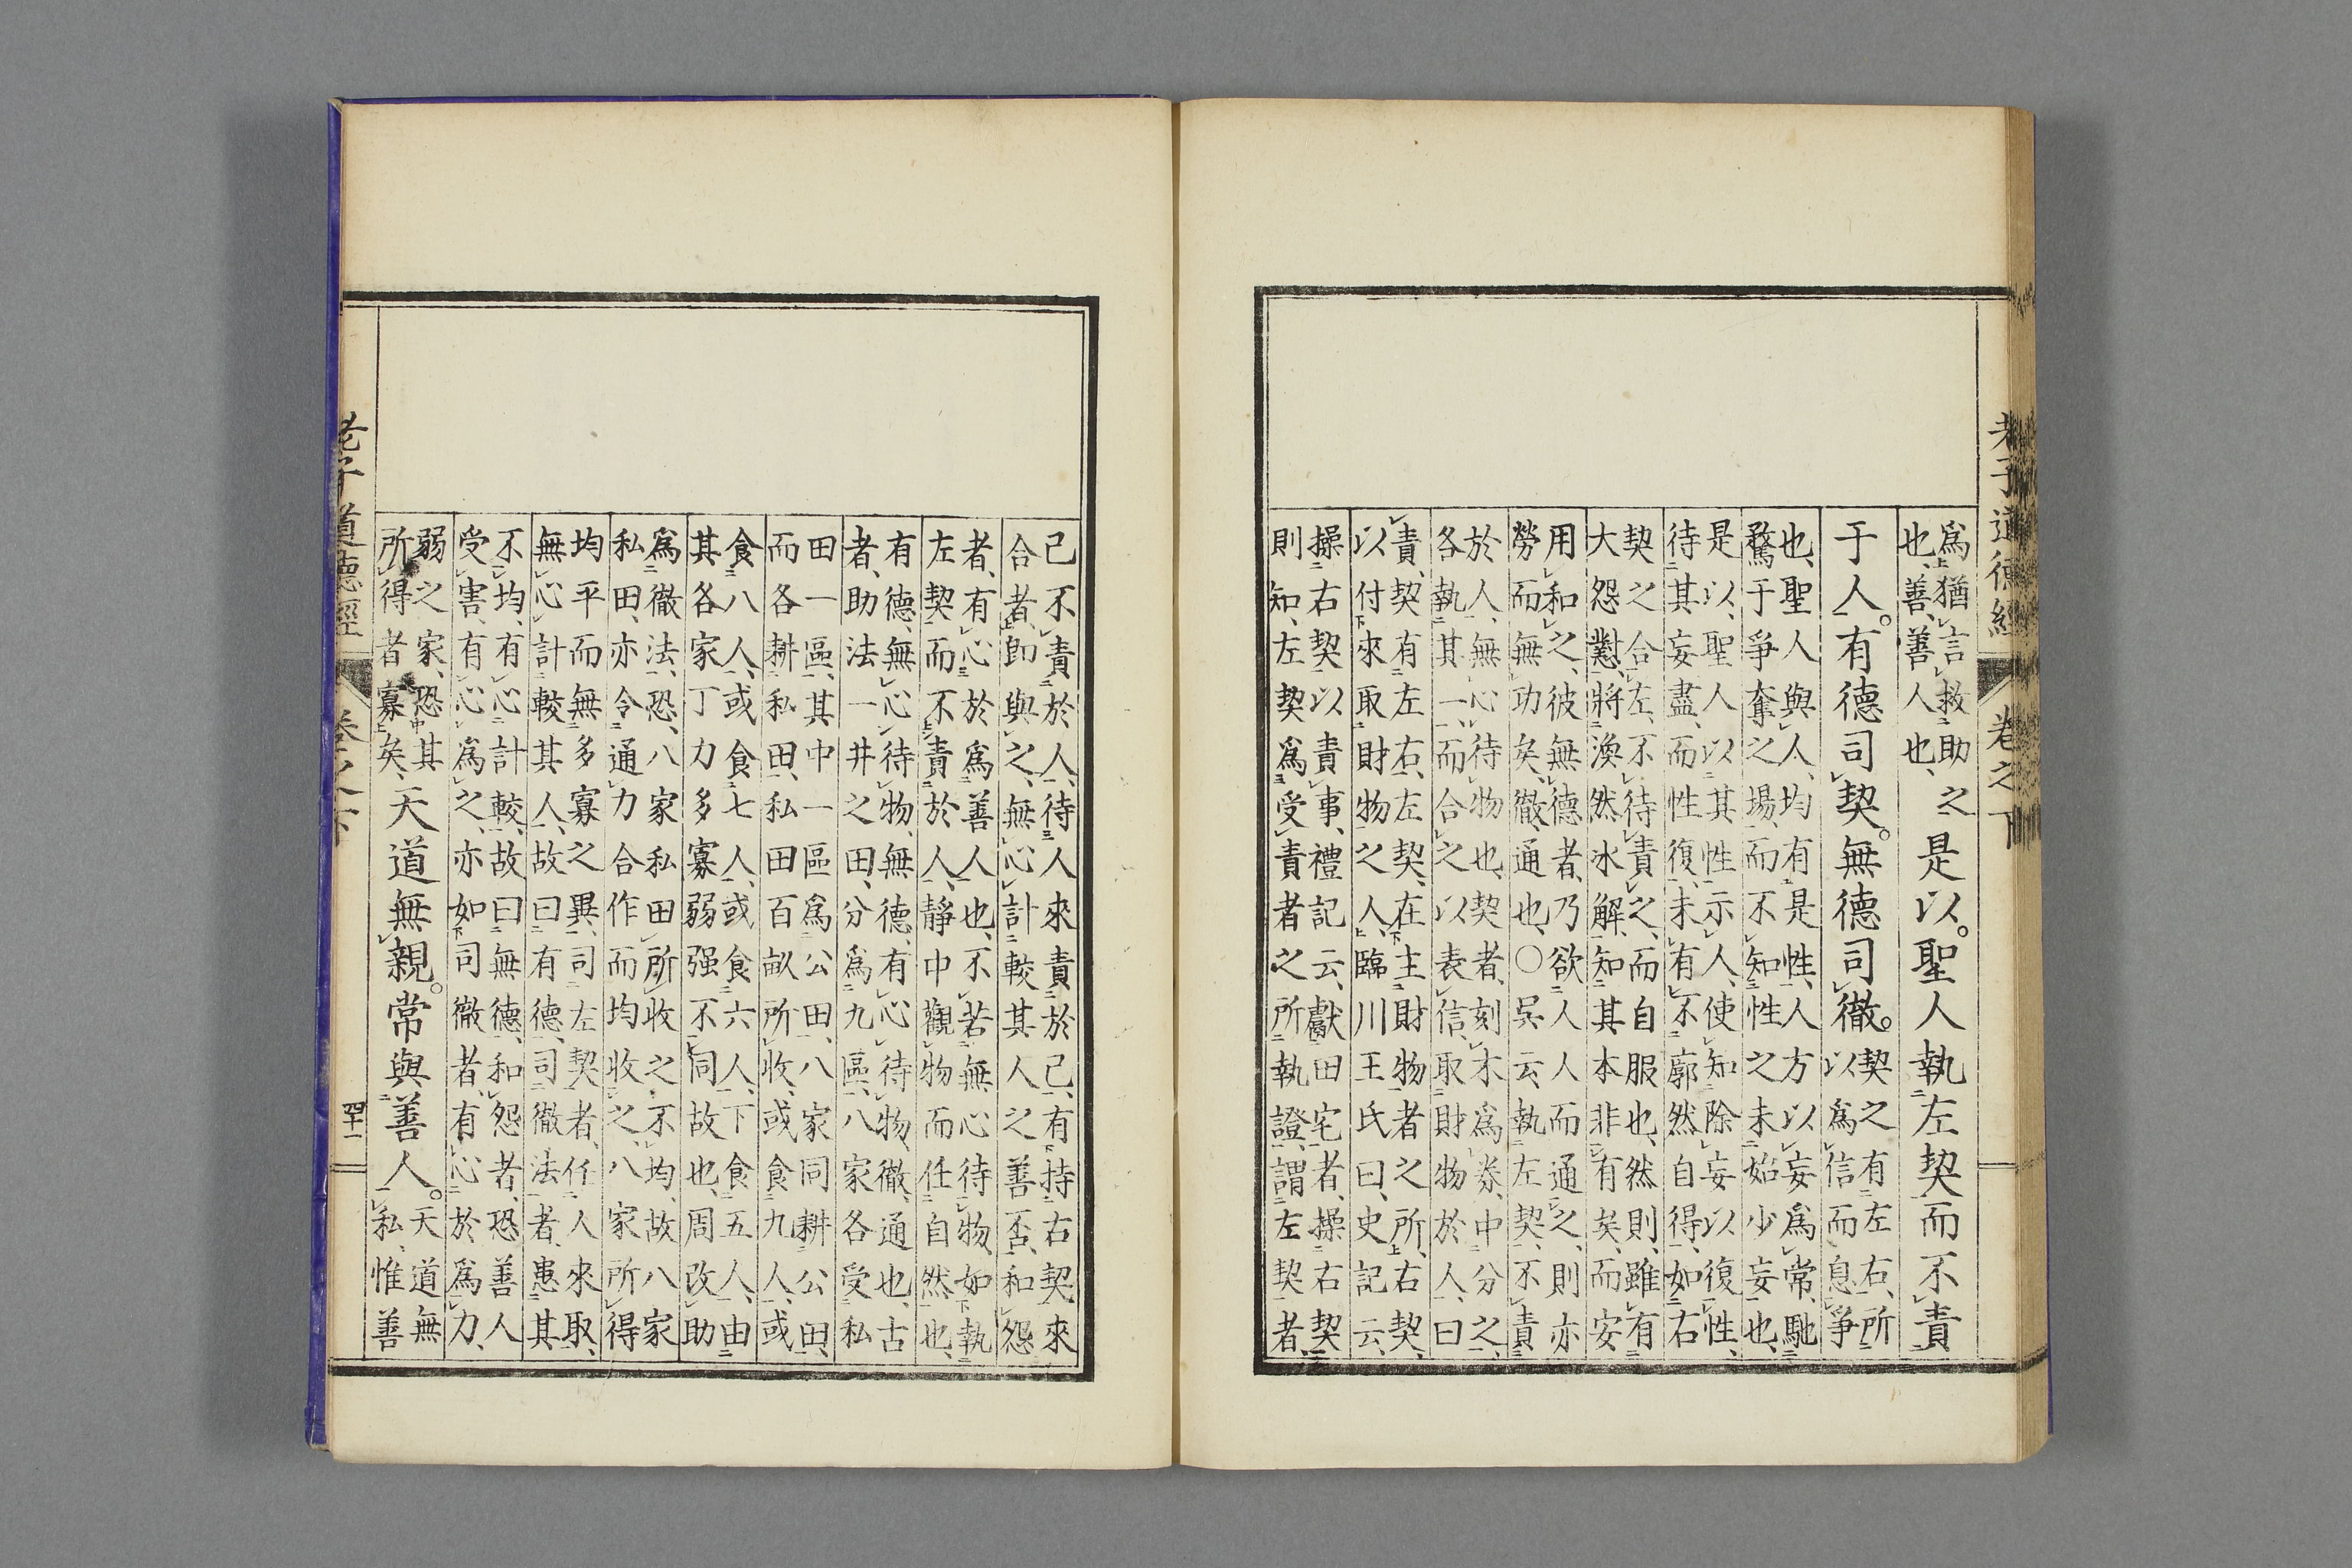 爲猶言救助之
也、善、善人也、
是以。聖人執左契而不責
于人。有德司契。無德司徹。
契之有左右、所
以爲信而息爭
也、聖人與人、均有是性、人方以妄爲常、馳
騖于爭奪之場、而不知性之未始少妄也、
是以、聖人以其性示人、使知除妄以復性、
待其妄盡、而性復、未有不廓然自得、如右
契之合左、不待責之、而自服也、然則、雖有
大怨懟、將渙然冰解、知其本非有矣、而安
用和之、彼無德者、乃欲人人而通之、則亦
勞而無功矣、徹、通也、○吳云、執左契、不責
於人、無心待物也、契者、刻木爲券、中分之、
各執其一、而合之以表信、取財物於人、曰
責、契有左右、左契、在主財物者之所、右契、
以付來取財物之人、臨川王氏曰、史記云、
操右契以責事、禮記云、獻田宅者、操右契、
則知、左契爲受責者之所執證、謂左契者、
己不責於人、待人來責於己、有持右契來
合者、卽與之、無心計較其人之善否、和怨
者、有心於爲善人也、不若無心待物、如執
左契、而不責於人、靜中觀物而任自然也、
有德、無心待物、無德、有心待物、徹、通也、古
者、助法一井之田、分爲九區、八家各受私
田一區、其中一區爲公田、八家同耕公田、
而各耕私田、私田百畝所收、或食九人、或
食八人、或食七人、或食六人、下食五人、由
其各家丁力多寡弱强不同故也、周改助
爲徹法、恐八家私田所收之不均、故八家
私田、亦令通力合作而均收之、八家所得
均平而無多寡之異、司左契者、任人來取、
無心計較其人、故曰有德、司徹法者、患其
不均、有心計較、故曰無德、和怨者、恐善人
受害、有心爲之、亦如司徹者、有心於爲力、
弱之家、恐其
所得者寡矣、
天道無親。常與善人。
天道無
私、惟善
老子道德經
卷之下
四十一